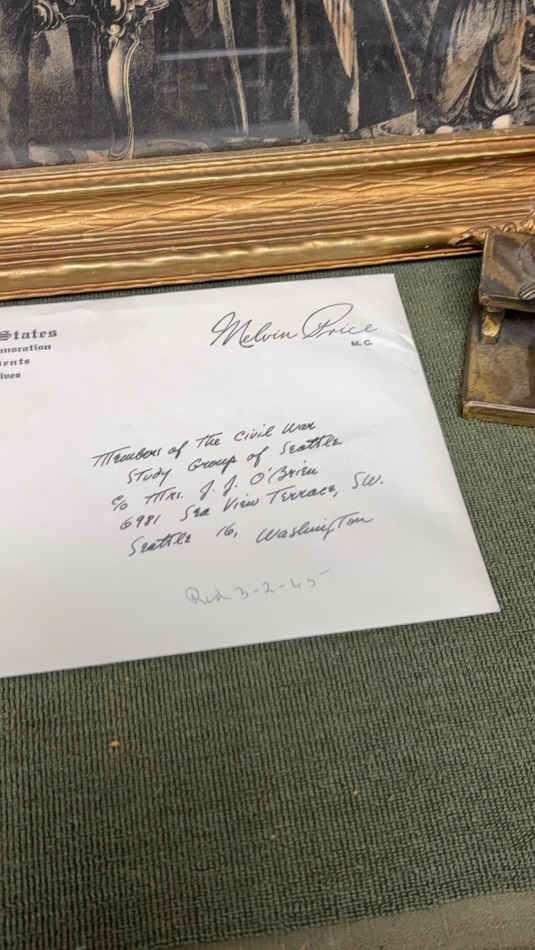 States
Melvin Price
M.C.
Members of The Civil War
Study Group of Seattle
c/o Mrs. J. J. O'Brien
6981 Sea View Terrace, SW.
Seattle 16, Washington
3-2-65